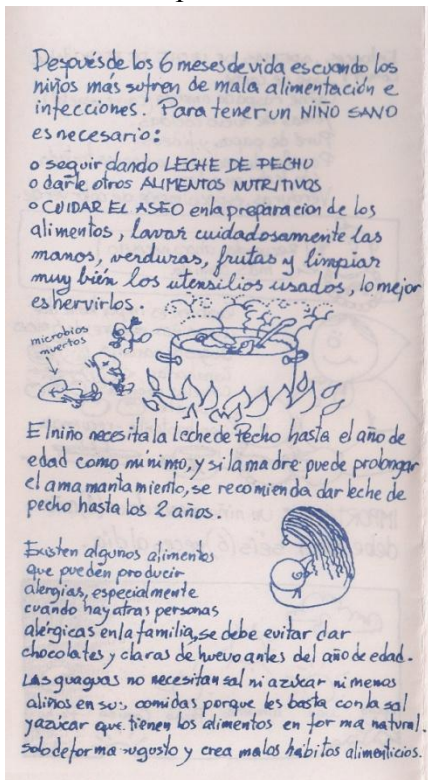 Después de los 6 meses de vida es cuando los
niños más sufren de mala alimentación e
infecciones. Para tener un NIÑO SANO
es necesario:
o seguir dando LECHE DE PECHO
o darle otros ALIMENTOS NUTRITIVOS
o CUIDAR EL ASEO en la preparacion de los
alimentos, lavar cuidadosamente las
manos, verduras, frutas y limpiar
muy bién los utensilios usados, lo mejor
es hervirlos.
microbios
muertos
El niño necesita la leche de Pecho hasta el año de
edad como mínimo, y si la madre puede prolongar
el amamantamiento, se recomienda dar leche de
pecho hasta los 2 años.
Existen algunos alimentos
que pueden producir
alergias, especialmente
cuando hay otras personas
alérgicas en la familia, se debe evitar dar
chocolates y claras de huevo antes del año de edad.
Las guaguas no necesitan sal ni azúcar ni menos
aliños en sus comidas porque les basta con la sal
y azúcar que tienen los alimentos en forma natural.
solo deforma su gusto y crea malos hábitos alimenticios.